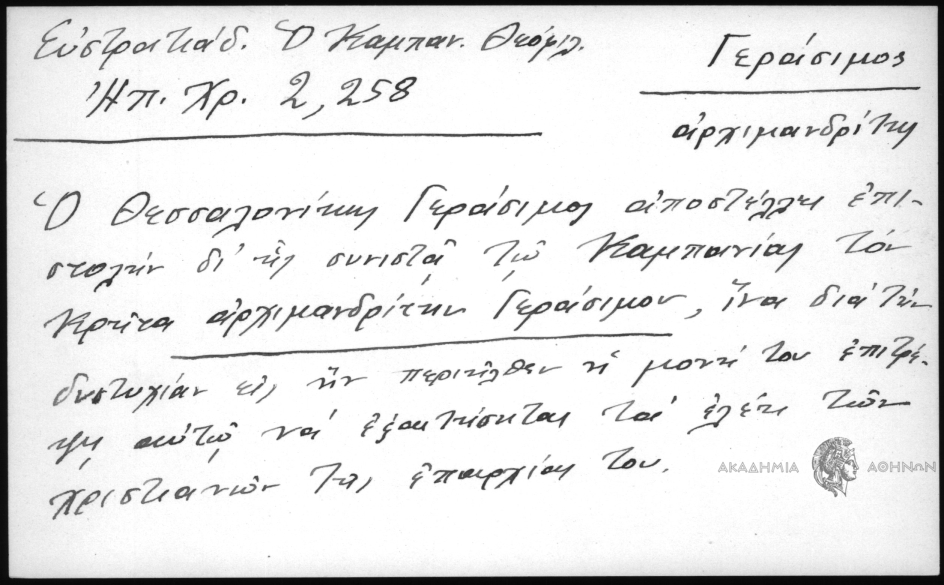 Εὐστρατιάδ. Ὁ Καμπαν. Θεόφιλ.
Ἠπ. Χρ. 2, 258
Γεράσιμος
ἀρχιμανδρίτης
Ὁ Θεσσαλονίκης Γεράσιμος ἀποστέλλει ἐπι-
στολήν δι' ἧς συνιστᾷ τῷ Καμπανίας τόν
Κρῆτα ἀρχιμανδρίτην Γεράσιμον, ἵνα διά τήν
δυστυχίαν εἰς ἥν περιῆλθεν ἡ μονή του ἐπιτρέ-
ψῃ αὐτῷ νά ἐξαιτήσηται τά ἐλέη τῶν
χριστιανῶν τῆς ἐπαρχίας του.
ΑΚΑΔΗΜΙΑ ΑΘΗΝΩΝ